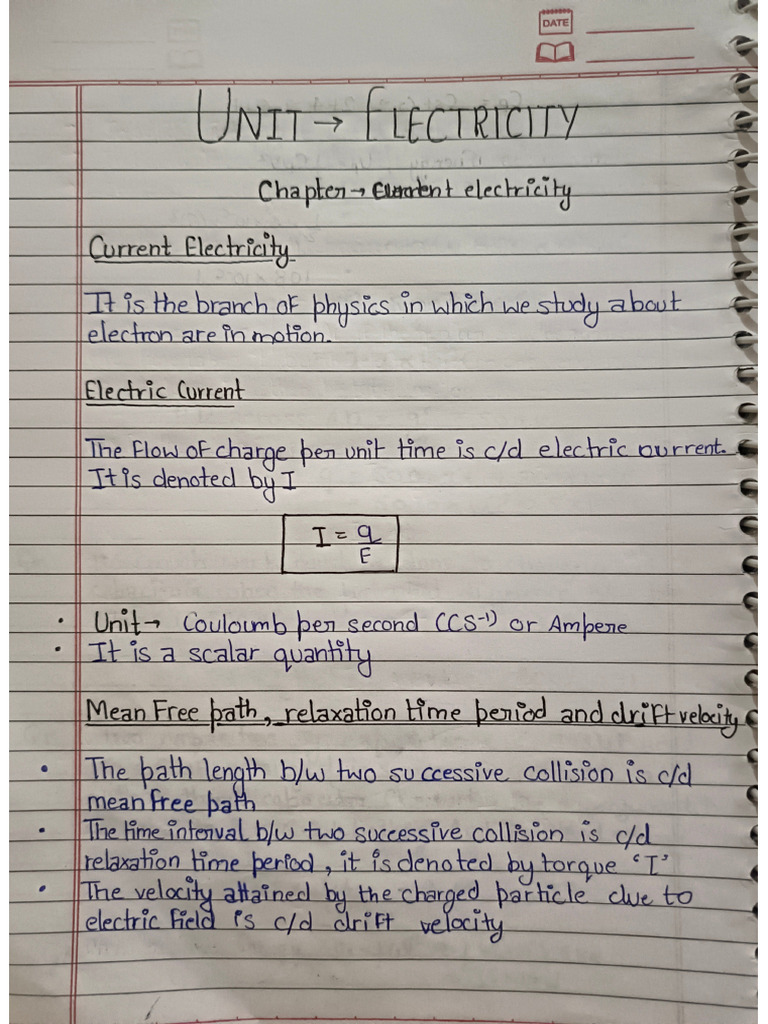 DATE
UNIT → ELECTRICITY
Chapter → Current electricity
Current Electricity
It is the branch of physics in which we study about
electron are in motion.
Electric Current
The flow of charge per unit time is c/d electric ourrent.
It is denoted by I
I = q
E
• Unit → Couloumb per second (CS⁻¹) or Ampere
• It is a scalar quantity
Mean Free path, relaxation time period and drift velocity
• The path length b/w two successive collision is c/d
mean free path
• The time interval b/w two successive collision is c/d
relaxation time period, it is denoted by torque 'I'
• The velocity attained by the charged particle due to
electric field is c/d drift velocity